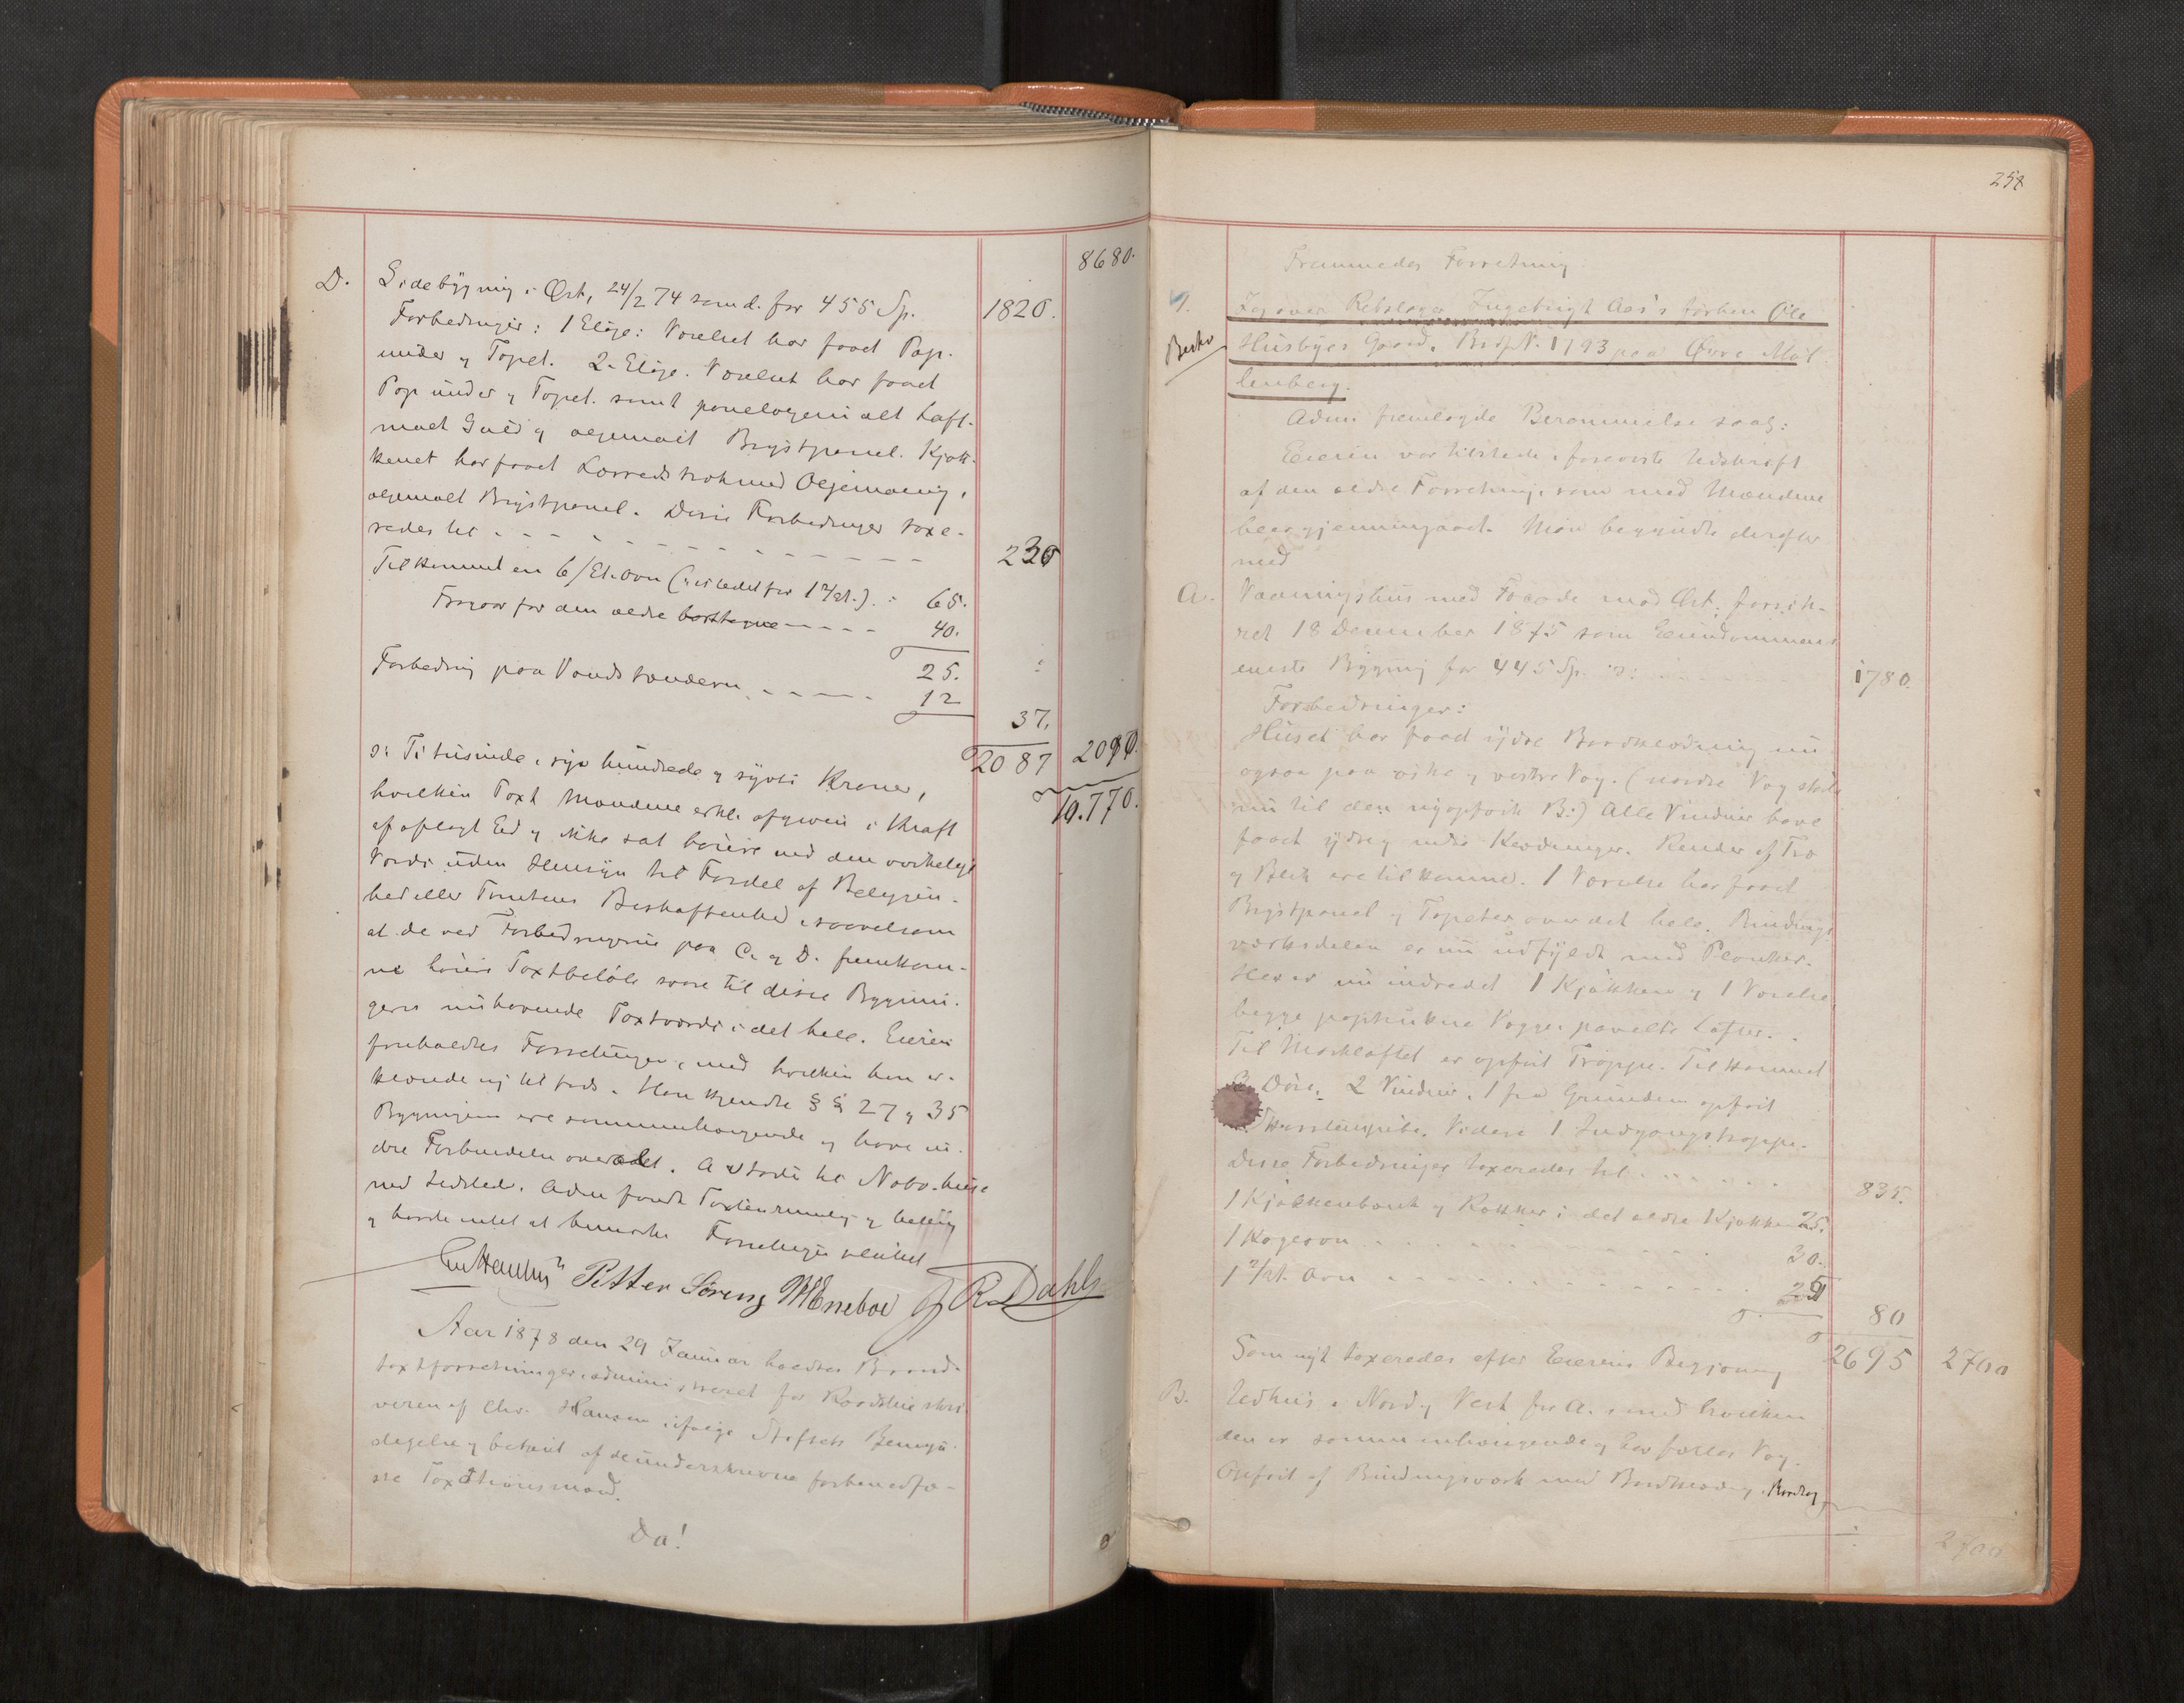 8680.
D. Sidebygning i Øst, 24/2 74 saml. for 455 Sp. 1820.
Forbedringer: 1 Etage: Værelset har faaet Pap
under og Tapet. 2. Etage. Værelset har faaet
Pap under og Tapet. samt panelogemalt Loft.
malt Gulv og oljemalt Brystpanel. Kjøk-
kenet har faaet Lærredstræk med Oljemaling,
oljemalt Brystpanel. Disse Forbedringer taxe-
redes til - - - - 230
Tilkommet en 6/Et. Ovn (istedet for 1 2/Et.) : 65.
Fragaar for den ældre borttagne - - - - 40.
25.
Forbedring paa Vandstanderen - - - - - 12
37.
2087 2090.
10.770.
o: Ti tusinde, syv hundrede og sytti Kroner,
hvilken Taxt Mændene erkl. afgiven i Kraft
af aflagt Eed og ikke sat høiere end den virkelige
Værdi uden Hensyn til Fordel af Beliggen-
hed eller Tomtens Beskaffenhed, saavelsom
at de ved Forbedringerne paa C. og D. fremkom-
ne høiere Taxtbeløb svare til disse Bygnin-
gers nuhavende Taxtværdi i det hele. Eieren
foreholdtes Forretningen, med hvilken han er-
klærede sig tilfreds. Han kjendte §§ 27 og 35
Bygningerne ere sammenhængende og have in-
dre Forbindelse overalt. A støder til Nabo-huse
ved Ildsted. Adm. fandt Taxten rimelig og billig
og havde intet at bemærke Forretningen sluttet
Petter Sørensen R. Dahl
Aar 1878 den 29 Januar holdtes Brand-
taxtforretninger, administreret for Raadstueskri-
veren af Chr. Hansen ifølge Stiftets Bemyn-
digelse og betient af de underskrevne forhen edfæ-
ste Taxationsmænd.
Da!
258
Fremmedes Forretning:
1. Tog over Rebslager Ingebrigt Aas's forhen Ole
Beskr Husbyes Gaard. Brdf. N. 1793 paa Øvre Møl-
lenberg.
Adm. fremlagde Berammelse saal:
Eieren var tilstede, foreviste Udskrift
af den ældre Forretning, som med Mændene
blev gjennemgaaet. Man begyndte derefter
med
A. Vaaningshus med Facade mod Øst, forsik-
ret 18 December 1875 som Eiendommens
eneste Bygning for 445 Sp. o: 1780.
Forbedringer:
Huset har faaet ydre Bordklædning nu
ogsaa paa østre og vestre Væg. (nordre Væg støder
nu til den nyopførte B.) Alle Vinduer have
faaet ydre og indre Klædninger. Render af Træ
og Blik ere tilkomne. 1 Værelse har faaet
Brystpanel og Tapeter over det hele. Bindings-
værksdelen er nu udfyldt med Planker.
Her er nu indredet 1 Kjøkken og 1 Værelse
begge paptrukne Vægge, panelte Lofter.
Til Mørkloftet er opført Trappe. Tilkommet
Døre, 2 Vinduer, 1 fra Grunden opført
Skorstenspibe. Videre 1 Indgangstrappe.
Disse Forbedringer taxeredes til - - - - 835.
1 Kjøkkenbænk og Rækker i det ældre Kjøkken 25.
1 Kogeovn - - - - 30.
1 2/Et. Ovn - - - - 25
80
2695 2700
Som nyt taxeredes efter Eierens Begjæring
B. Udhus i Nord og Vest for A., med hvilken
den er sammenhængende og har fælles Væg.
Opført af Bindingsværk med Bordklædning, Bordtag
2700